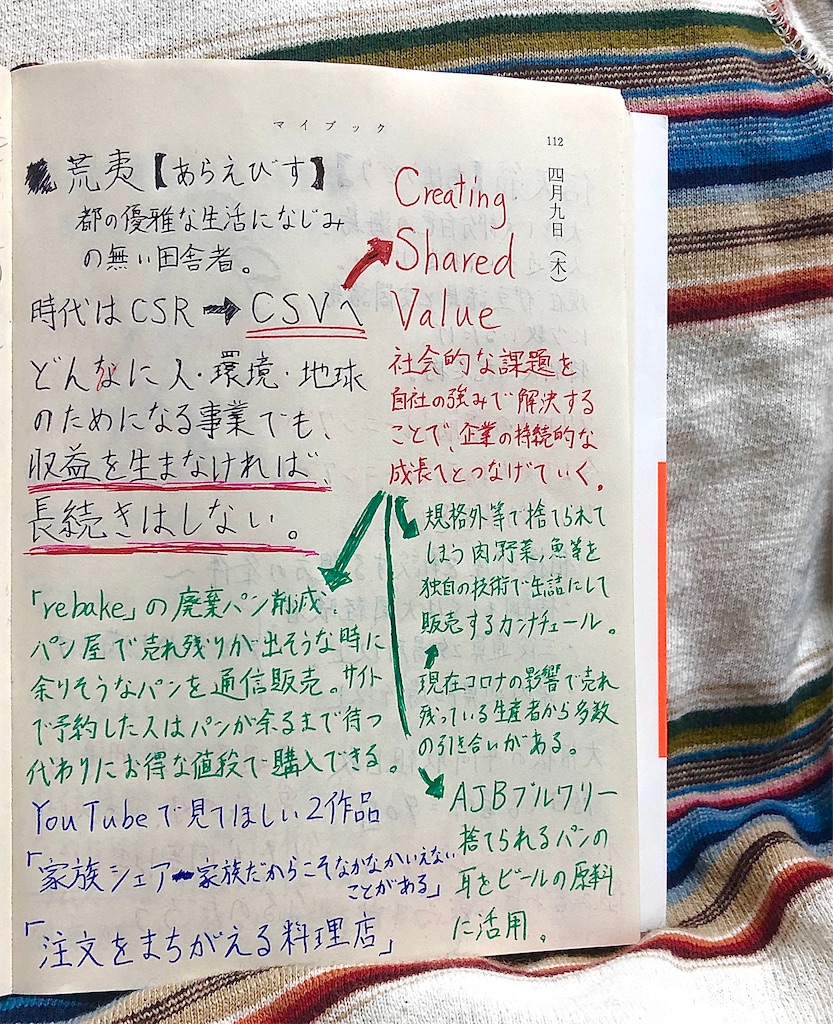 マイブック
112
四月九日（木）
荒夷【あらえびす】
都の優雅な生活になじみ
の無い田舎者。
時代はCSR→CSVへ
Creating
Shared
Value
社会的な課題を
自社の強みで解決する
ことで、企業の持続的な
成長へとつなげていく。
どんなに人・環境・地球
のためになる事業でも、
収益を生まなければ、
長続きはしない。
「rebake」の廃棄パン削減。
パン屋で売れ残りが出そうな時に
余りそうなパンを通信販売。サイト
で予約した人はパンが余るまで待つ
代わりにお得な値段で購入できる。
規格外等で捨てられて
しまう肉、野菜、魚等を
独自の技術で缶詰にして
販売するカンナチュール。
現在コロナの影響で売れ
残っている生産者から多数
の引き合いがある。
AJBブルワリー
捨てられるパンの
耳をビールの原料
に活用。
YouTubeで見てほしい2作品
「家族シェア-家族だからこそなかなかいえない
ことがある」
「注文をまちがえる料理店」